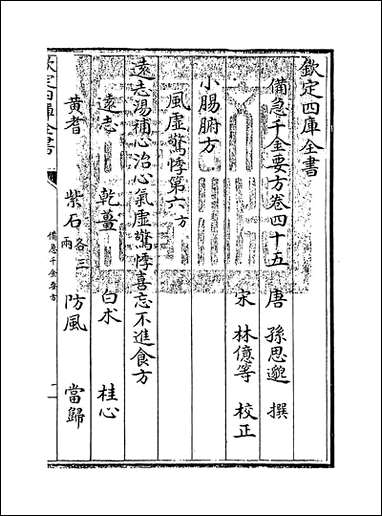 欽定四庫全書
備急千金要方卷四十五
唐 孫思邈 撰
宋 林億等 校正
小腸腑方
風虛驚悸第六方
遠志湯補心治心氣虛驚悸喜忘不進食方
遠志 乾薑 白术 桂心
黃耆 紫石各三兩 防風 當歸
欽定四庫全書
備急千金要方